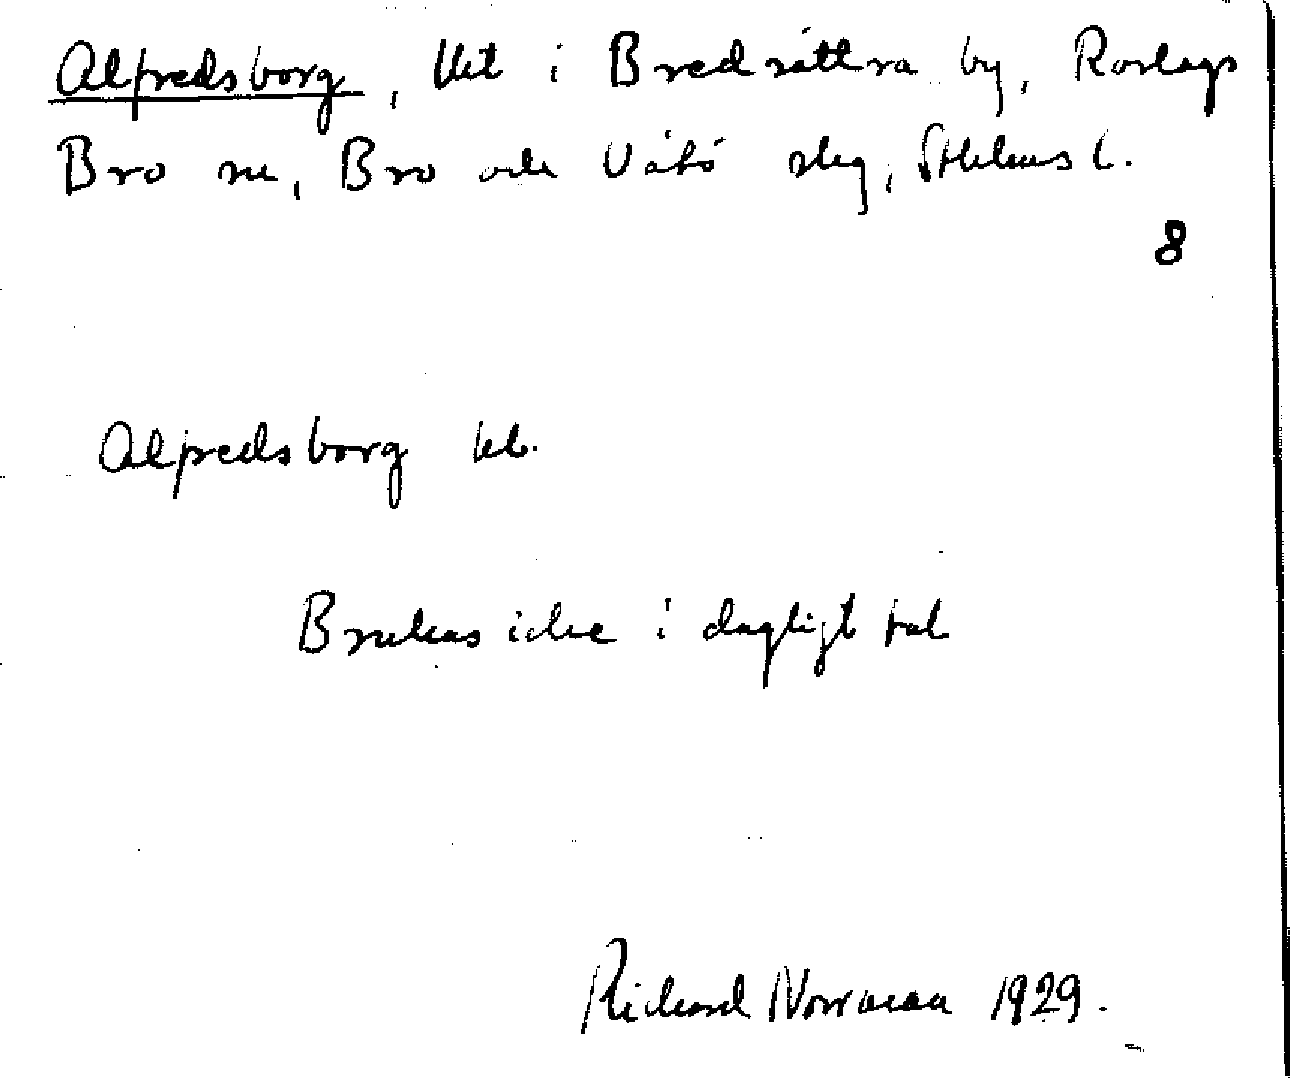 Alfredsborg, lht i Bredsättra by, Roslags
Bro sn, Bro och Vätö skg, Sthlms l.
8
Alfredsborg kb.
Brukas icke i dagligt tal
Richard Norrman 1929.